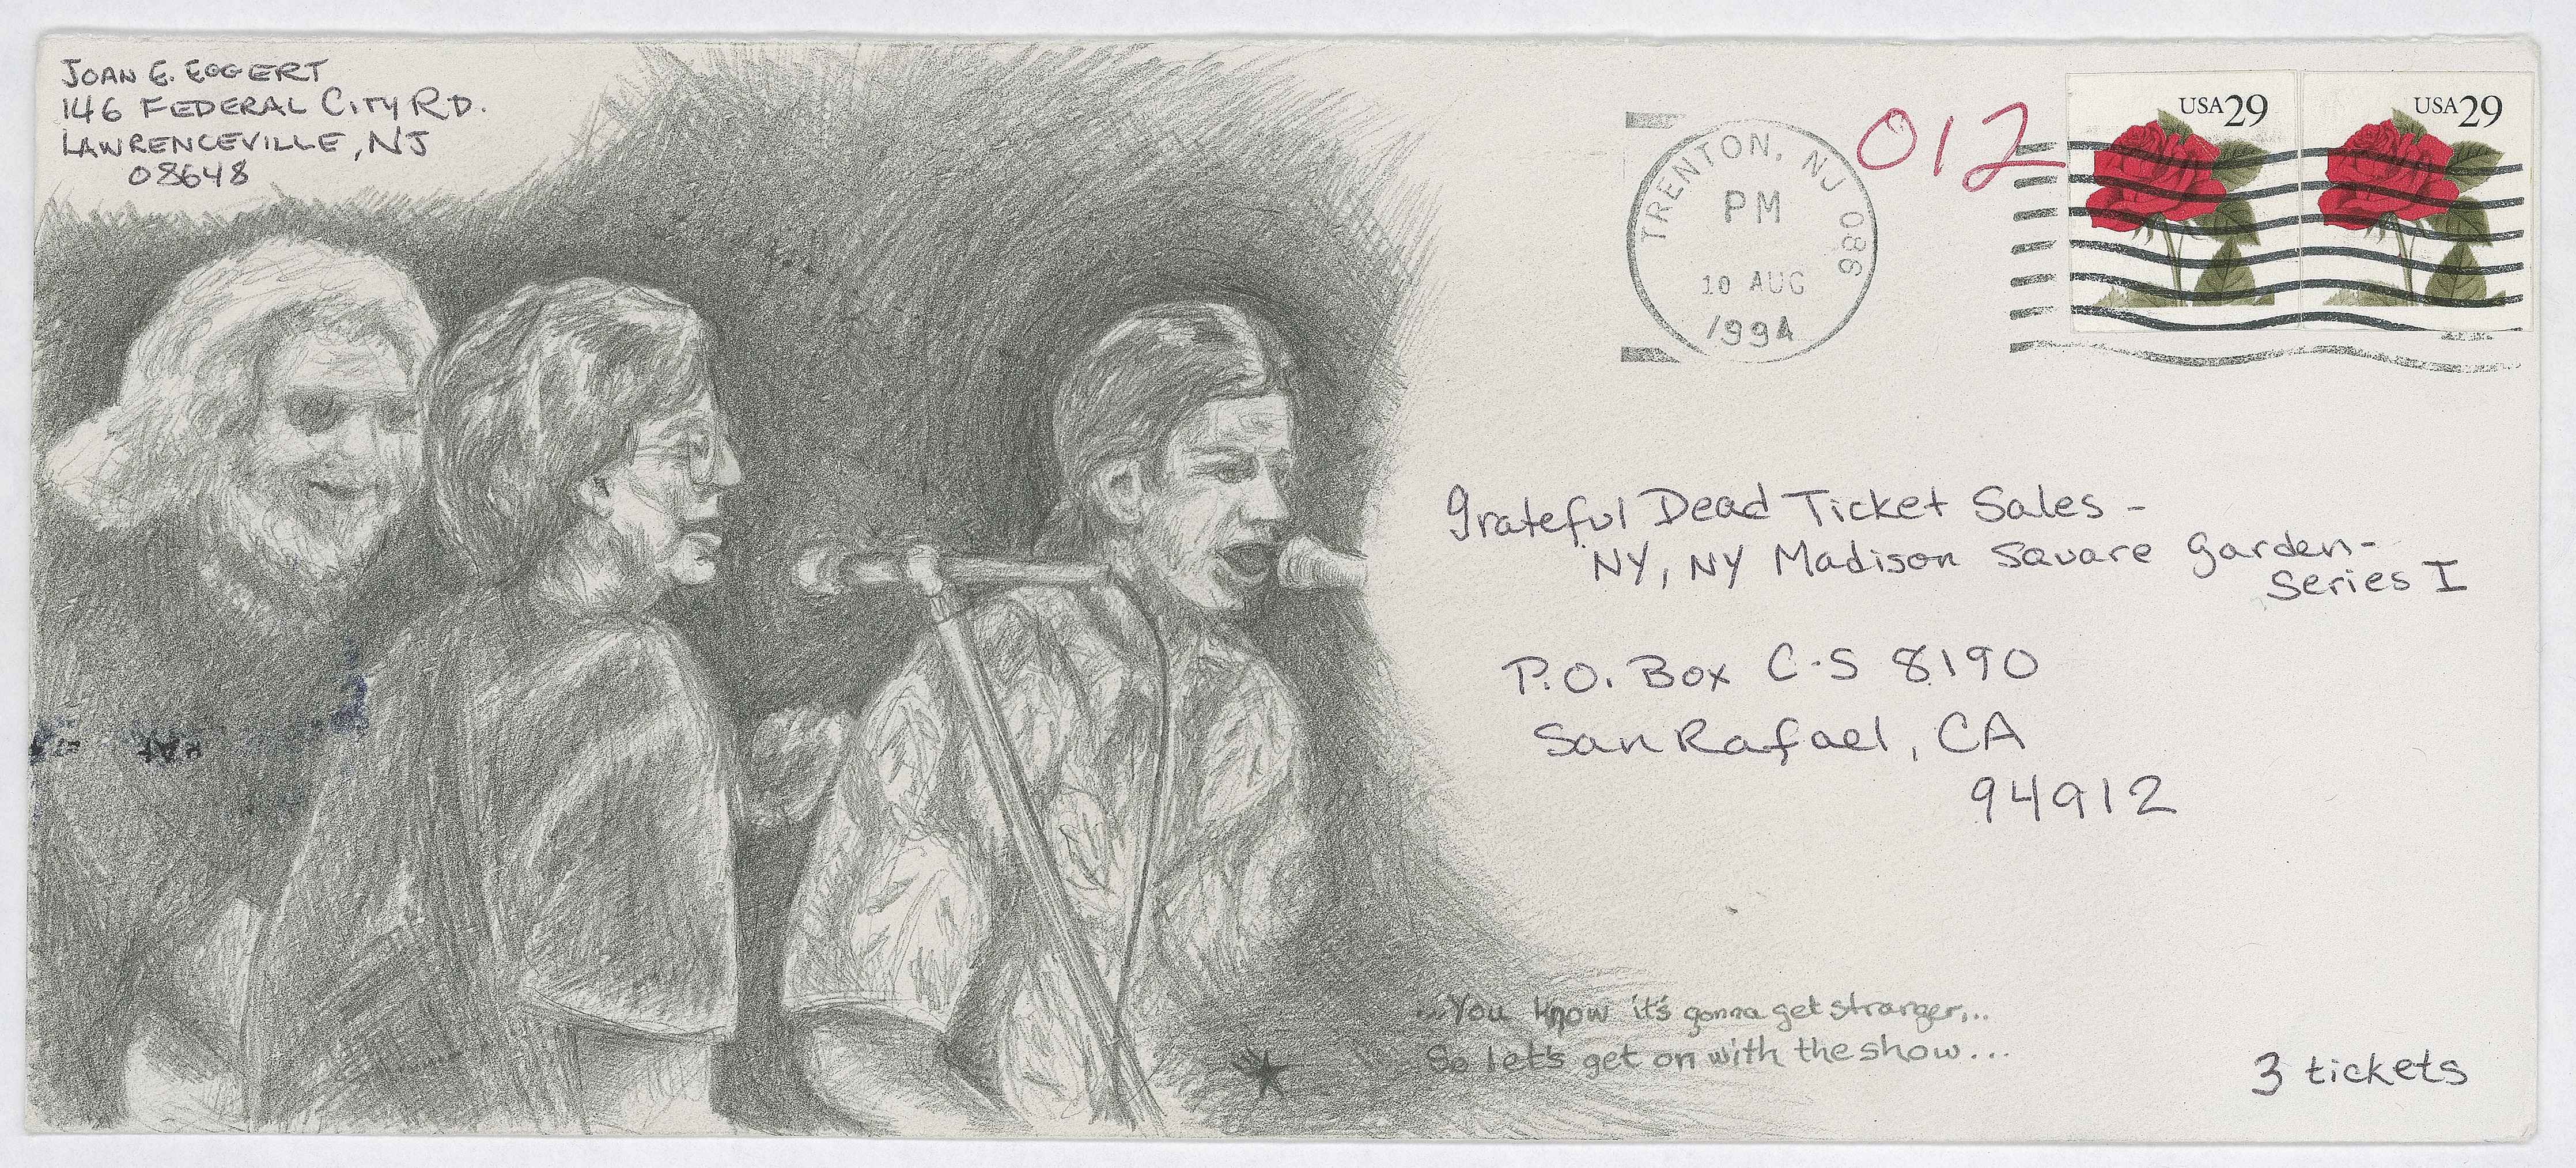 JOAN E. EGGERT
146 FEDERAL CITY RD.
LAWRENCEVILLE, NJ
08648
TRENTON, NJ 086
PM
10 AUG
1994
012
USA 29
USA 29
Grateful Dead Ticket Sales -
NY, NY Madison Square Garden-
Series I
P.O. Box C-S 8190
San Rafael, CA
94912
...You know it's gonna get stranger,..
So let's get on with the show...
3 tickets